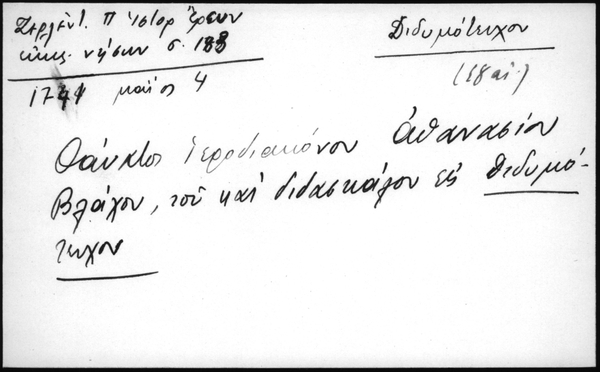 Ζερλέντ. Π ἱστορ ἔρευν
νήσων σ. 188
Διδυμότειχον
(18 αἰ.)
17 μαΐος 4
Θάνατος ἱεροδιακόνου Ἀθανασίου
Βλάχου, τοῦ καὶ διδασκάλου εἰς Διδυμό-
τειχον